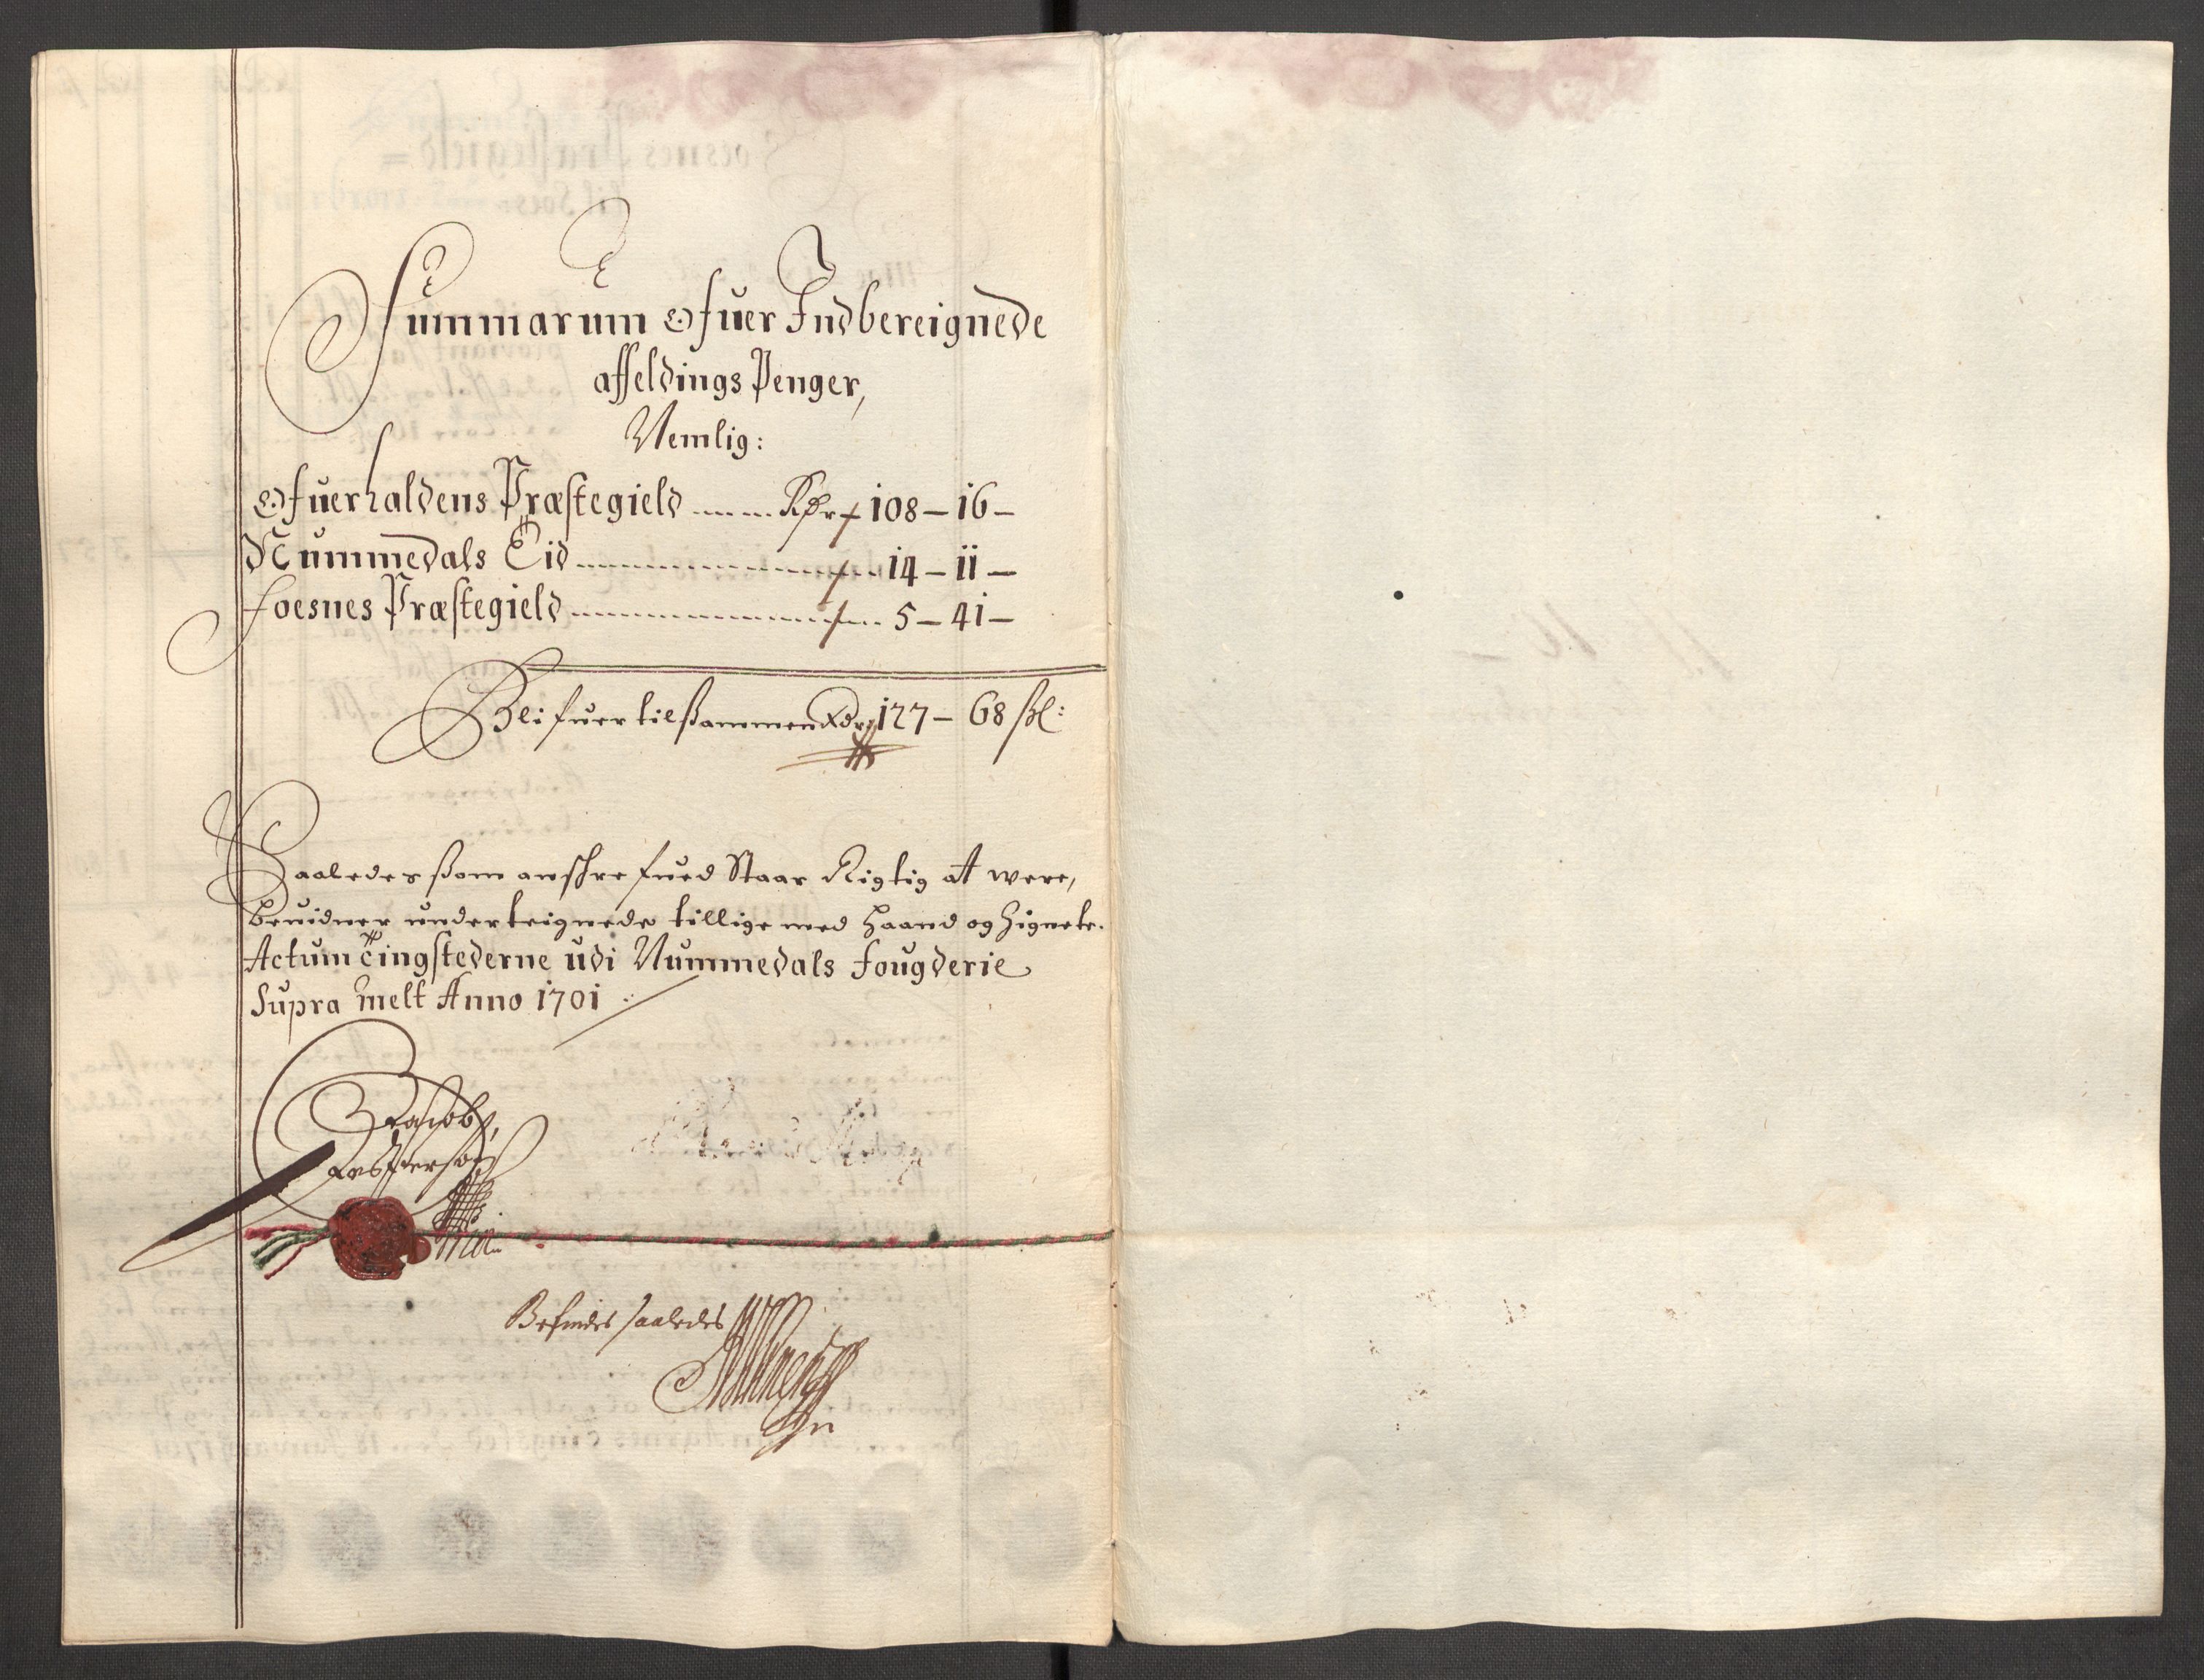 Summarum Ofuer Indbereignede
affeldings Penger,
Nemlig:
Ofuerhaldens Præstegield ...... Rdr 108 – 16 –
Nummedals Eid ...... 14 – 11 –
Foesnes Præstegield ...... 5 – 41 –
Blifuer tilsammen Rdr 127 – 68 ßl:
Saaledes ßom anschrefued Staar Rigtig at were,
beuidner underteignede tillige med Haand og Zignete.
Actum Tingstederne udi Nummedals Fougderie
Supra melt Anno 1701
Jacob
Kasperson
Befindes saaledes